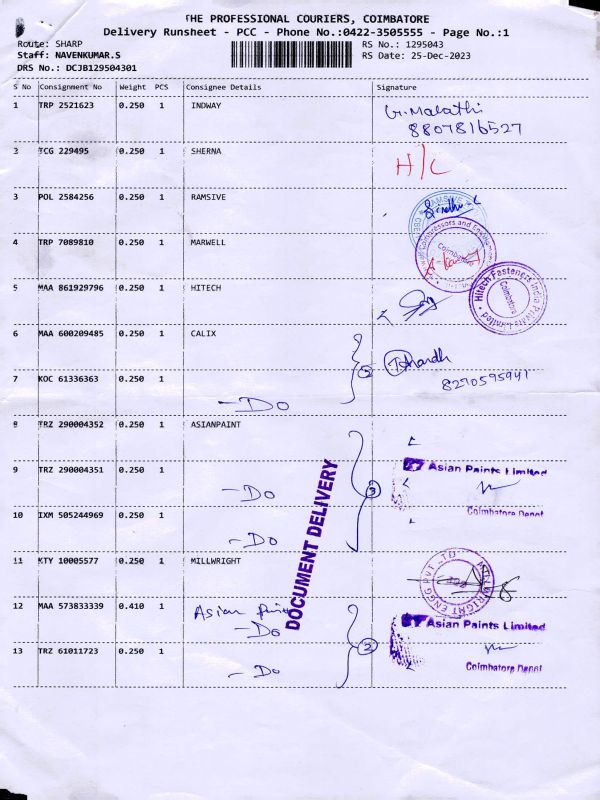 THE PROFESSIONAL COURIERS, COIMBATORE
Delivery Runsheet - PCC - Phone No.:0422-3505555 - Page No.:1
Route: SHARP RS No.: 1295043
Staff: NAVENKUMAR.S RS Date: 25-Dec-2023
DRS No.: DCJB129504301
S No Consignment No Weight PCS Consignee Details Signature
1 TRP 2521623 0.250 1 INDWAY G. Malathi
8807816527
2 TCG 229495 0.250 1 SHERNA H/C
3 POL 2584256 0.250 1 RAMSIVE
4 TRP 7089810 0.250 1 MARWELL
Compressors and
Coimbatore
5 MAA 861929796 0.250 1 HITECH
Hitech Fasteners India Private Limited
Coimbatore
6 MAA 600209485 0.250 1 CALIX
7 KOC 61336363 0.250 1 - Do 2
8270595941
8 TRZ 290004352 0.250 1 ASIANPAINT
Asian Paints Limited
9 TRZ 290004351 0.250 1 - Do 3
Coimbatore Depot
10 IXM 505244969 0.250 1 - Do
DOCUMENT DELIVERY
11 KTY 10005577 0.250 1 MILLWRIGHT
MILLWRIGHT ENGG PVT LTD
12 MAA 573833339 0.410 1 Asian Paint
- Do
Asian Paints Limited
13 TRZ 61011723 0.250 1 - Do 2
Coimbatore Depot